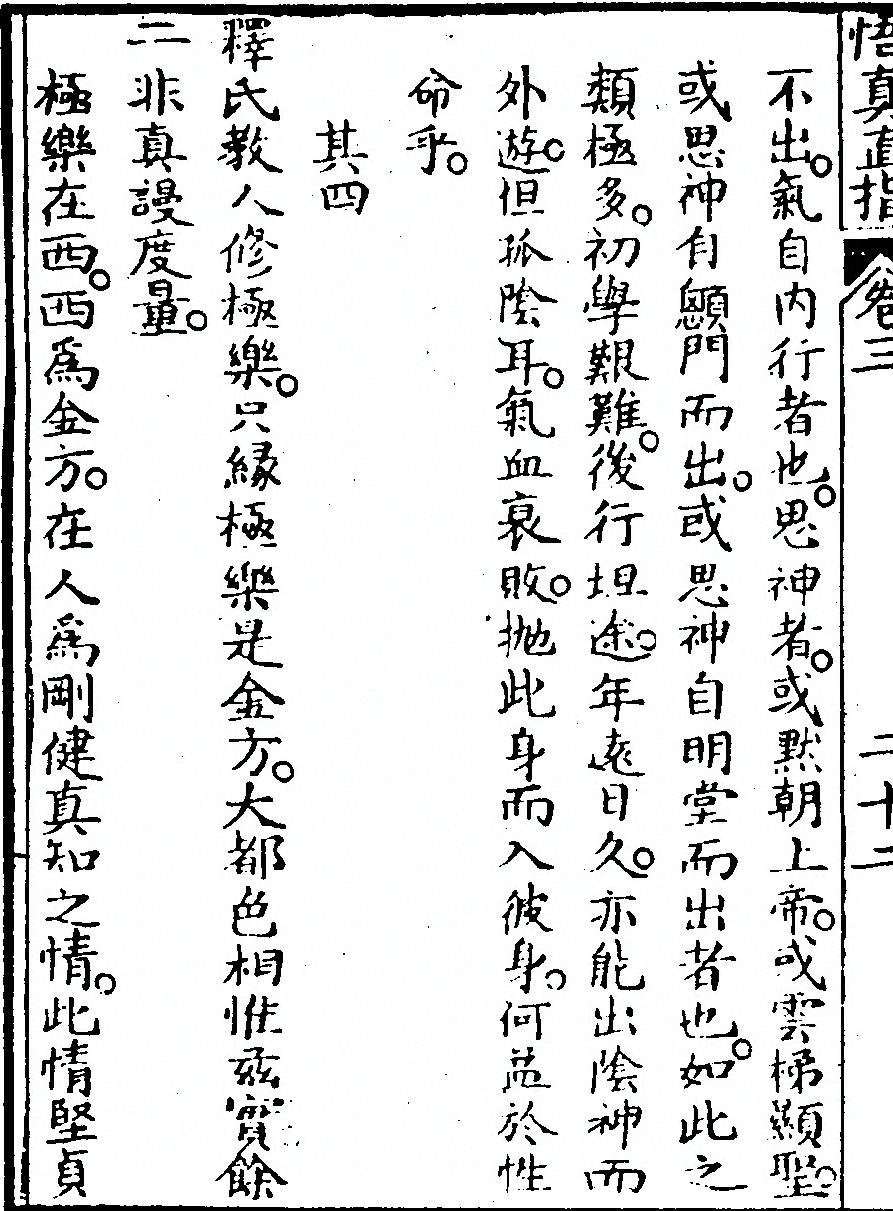 悟真直指 卷三 二十二
不出。氣自内行者也。思神者。或默朝上帝。或雲梯顯聖。
或思神自顖門而出。或思神自明堂而出者也。如此之
類極多。初學艱難。後行坦途。年遠日久。亦能出陰神而
外遊。但孤陰耳。氣血衰敗。抛此身而入彼身。何益於性
命乎。
其四
釋氏教人修極樂。只緣極樂是金方。大都色相惟茲實餘
二非真謾度量。
極樂在西。西爲金方。在人爲剛健真知之情。此情堅貞